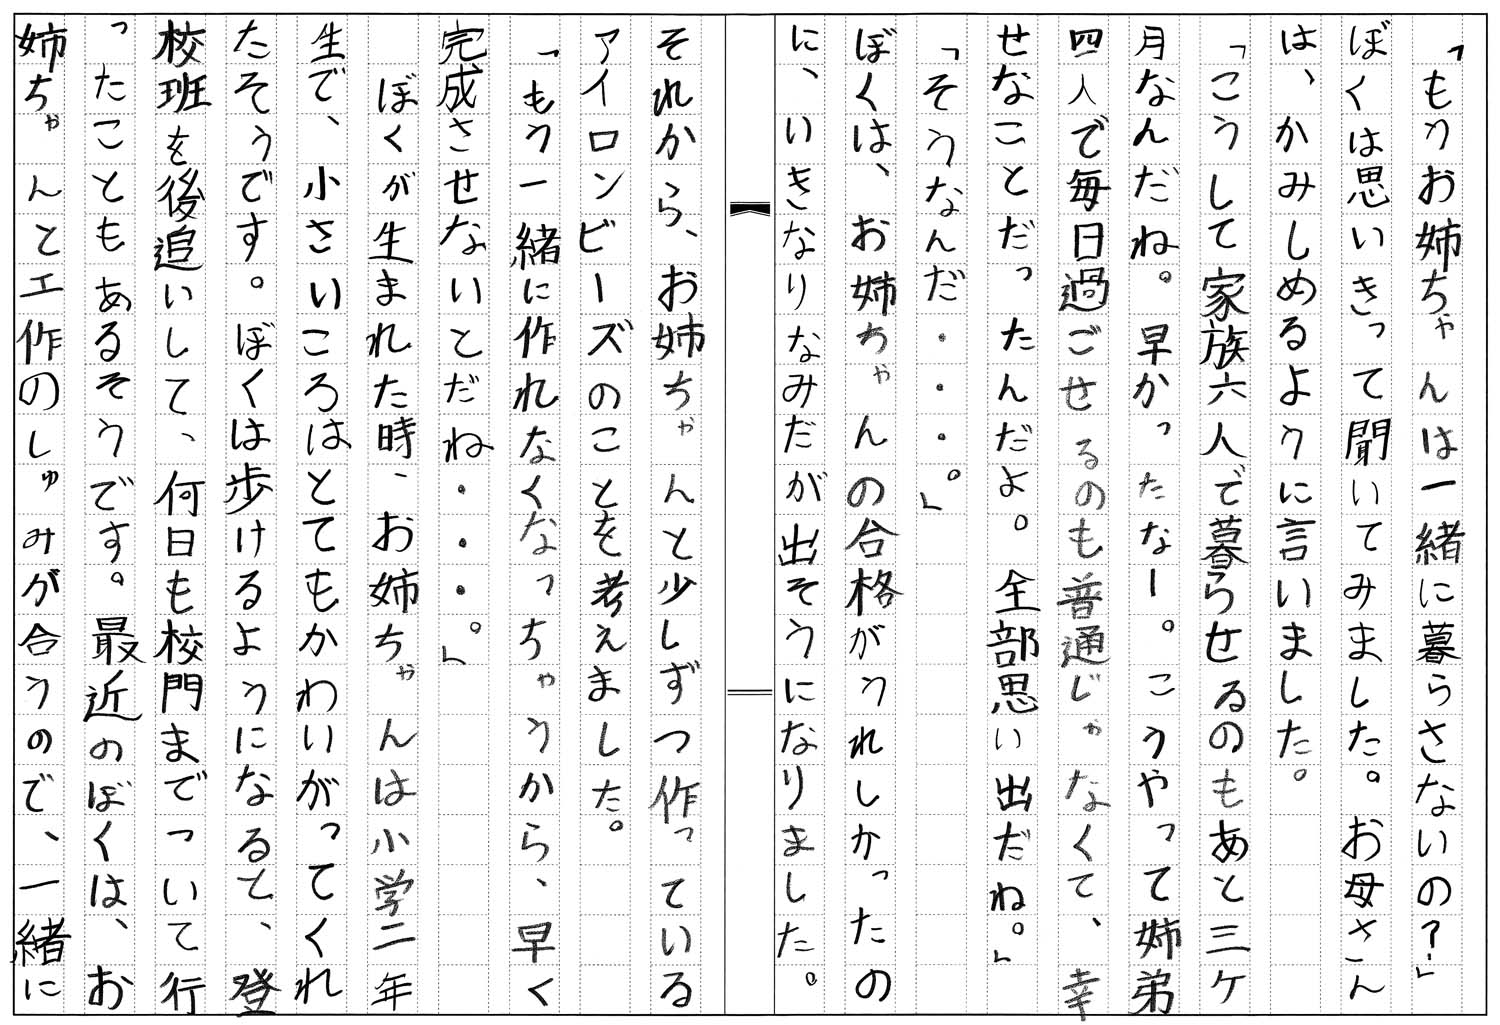 「もうお姉ちゃんは一緒に暮らさないの？」
ぼくは思いきって聞いてみました。お母さん
は、かみしめるように言いました。
「こうして家族六人で暮らせるのもあと三ケ
月なんだね。早かったなー。こうやって姉弟
四人で毎日過ごせるのも普通じゃなくて、幸
せなことだったんだよ。全部思い出だね。」
「そうなんだ・・・。」
ぼくは、お姉ちゃんの合格がうれしかったの
に、いきなりなみだが出そうになりました。
それから、お姉ちゃんと少しずつ作っている
アイロンビーズのことを考えました。
「もう一緒に作れなくなっちゃうから、早く
完成させないとだね・・・。」
ぼくが生まれた時、お姉ちゃんは小学二年
生で、小さいころはとてもかわいがってくれ
たそうです。ぼくは歩けるようになると、登
校班を後追いして、何日も校門までついて行
ったこともあるそうです。最近のぼくは、お
姉ちゃんと工作のしゅみが合うので、一緒に